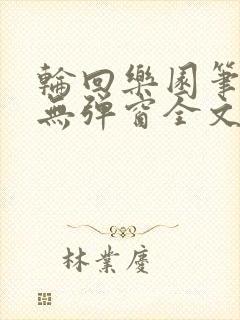 輪回樂園筆
無彈窗全文
林業慶